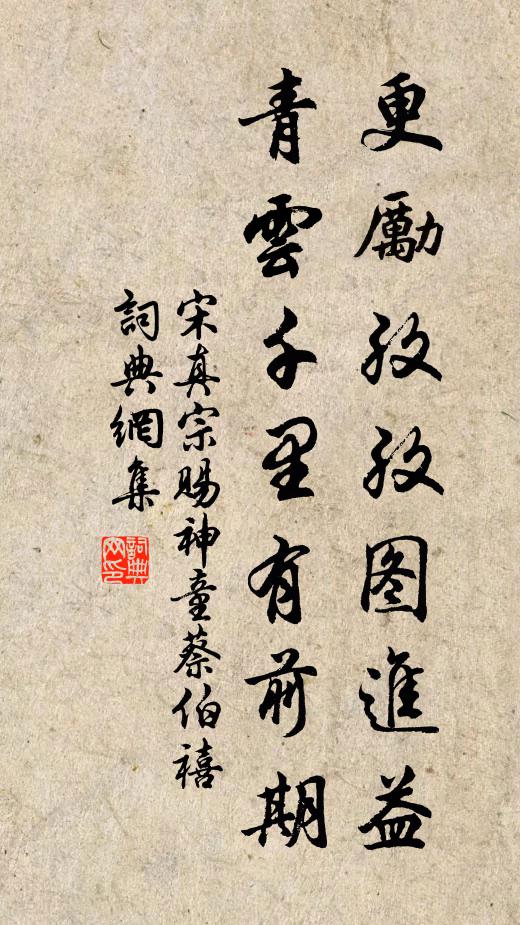 更勵孜孜图進益
青雲千里有前期
宋真宗賜神童蔡伯禧
詞典網集
詞典
网印